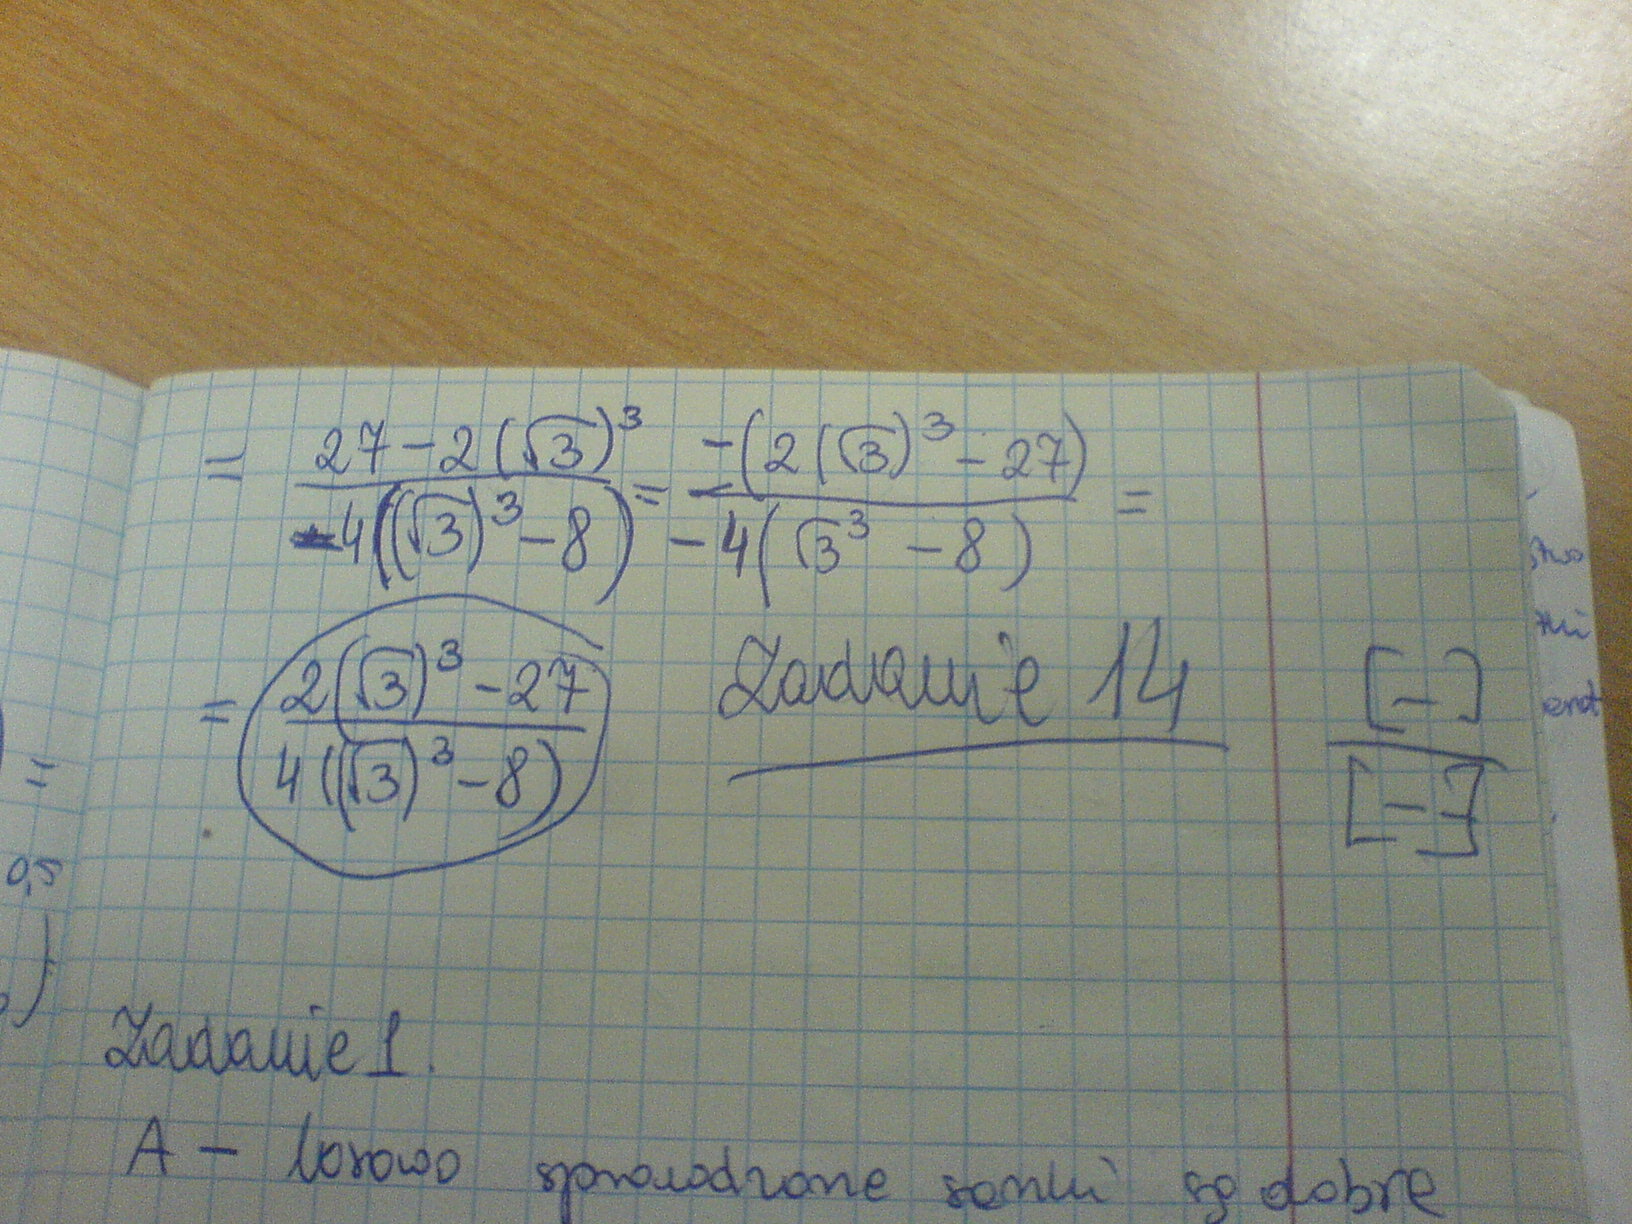 = 27 - 2(√3)³ / -4((√3)³ - 8) = -(2(√3)³ - 27) / -4(√3³ - 8) =
= 2(√3)³ - 27 / 4((√3)³ - 8)
Zadanie 14
[-] / [-]
=
0,5
Zadanie 1.
A - losowo sprowadzone sanki są dobre